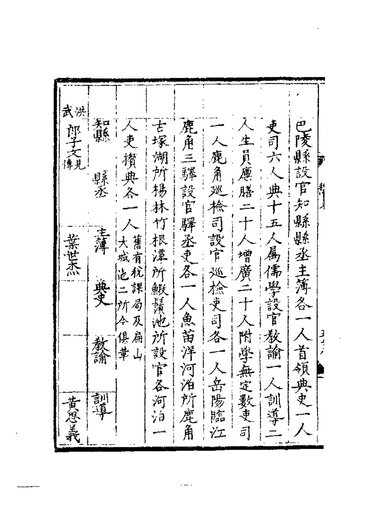 巴陵縣設官知縣縣丞主簿各一人首領典史一人
吏司六人典十五人属儒學設官教諭一人訓導二
人生員廩膳二十人增廣二十人附學無定數吏司
一人鹿角巡檢司設官巡檢吏司各一人岳陽臨江
鹿角三驛設官驛丞吏各一人魚苗洋河泊所鹿角
古塚湖所楊林竹根潭所鰕鬚池所設官各河泊一
人吏攢典各一人舊有稅課局及扁山
大城池二所今俱革
知縣 縣丞 主簿 典史 教諭 訓導
洪武 郎子文見傳 葉世杰 黄思義